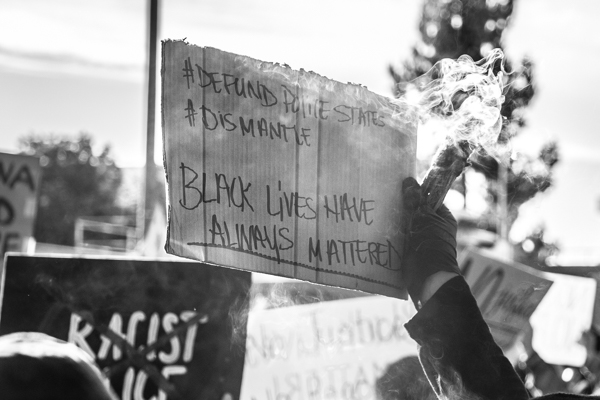 #DEFUND POLICE STATES
#DISMANTLE
BLACK LIVES HAVE
ALWAYS MATTERED
NA
D
RACIST
ICE